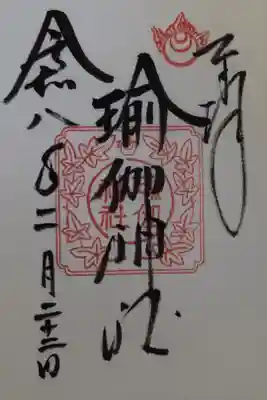 奉拝
瑜伽神社
令和八年二月二十二日